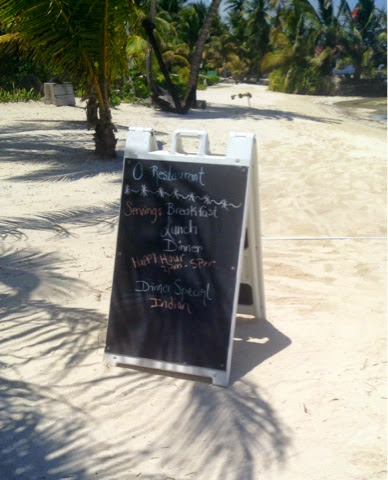 O Restaurant
Serving: Breakfast
Lunch
Dinner
Happy Hour
Dinner Special
Indian